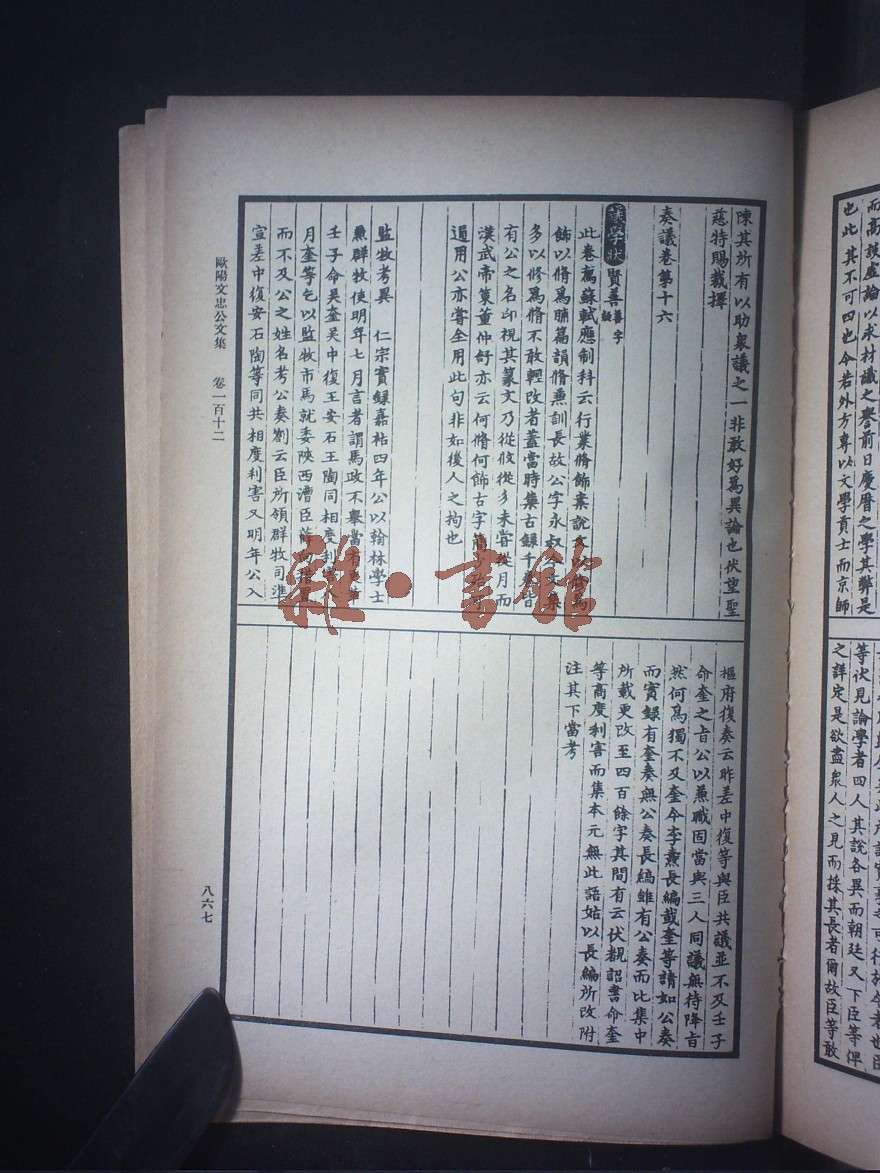 而高談虛論以求材識之譽前日慶曆之學其弊是
也此其不可四也今若外方專以文學貢士而京師
可行於今者也臣
等伏見論學者四人其說各異而朝廷又下臣等俾
之詳定是欲盡衆人之見而採其長者爾故臣等敢
陳其所有以助衆議之一非敢好爲異論也伏望聖
慈特賜裁擇
奏議卷第十六
議學狀 賢善 善字
此卷舊蘇軾應制科云行業脩飾案說文以修爲
飾以脩爲脯篇韻脩兼訓長故公字永叔今文集
多以修爲脩不敢輕改者蓋當時集古錄千卷皆
有公之名印視其篆文乃從攸從彡未嘗從月而
漢武帝策董仲舒亦云何脩何飾古字簡少
通用公亦嘗全用此句非如後人之拘也
監牧考異 仁宗實錄嘉祐四年公以翰林學士
兼群牧使明年七月言者謂馬政不舉當有更革
壬子命吳奎吳中復王安石王陶同相度利害
月奎等乞以監牧市馬就委陝西漕臣薛向措置
而不及公之姓名考公奏劄云臣所領群牧司準
宣差中復安石陶等同共相度利害又明年公入
樞府復奏云昨差中復等與臣共議並不及壬子
命奎之旨公以兼職固當與三人同議無待降旨
然何爲獨不及奎今李燾長編載奎等請如公奏
而實錄有奎奏無公奏長編雖有公奏而比集中
所載更改至四百餘字其間有云伏覩詔書命奎
等商度利害而集本元無此語姑以長編所改附
注其下當考
歐陽文忠公文集 卷一百十二
八六七
雜·書館